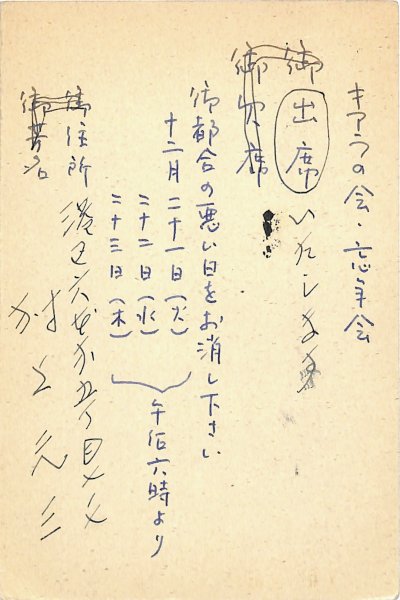 キアラの会・忘年会
御出席いたします
御欠席
御都合の悪い日をお消し下さい
十二月 二十一日(火)
二十二日(水)
二十三日(木)
午后六時より
御住所 港区六本木五丁目
御芳名 村上元三